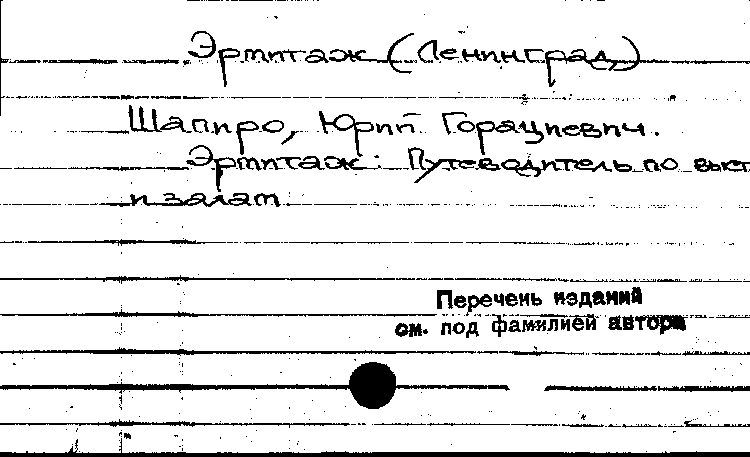 Эрмитаж (Ленинград)
Шапиро, Юрий Горациевич.
Эрмитаж: Путеводитель по выст
и залам
Перечень изданий
см. под фамилией автора